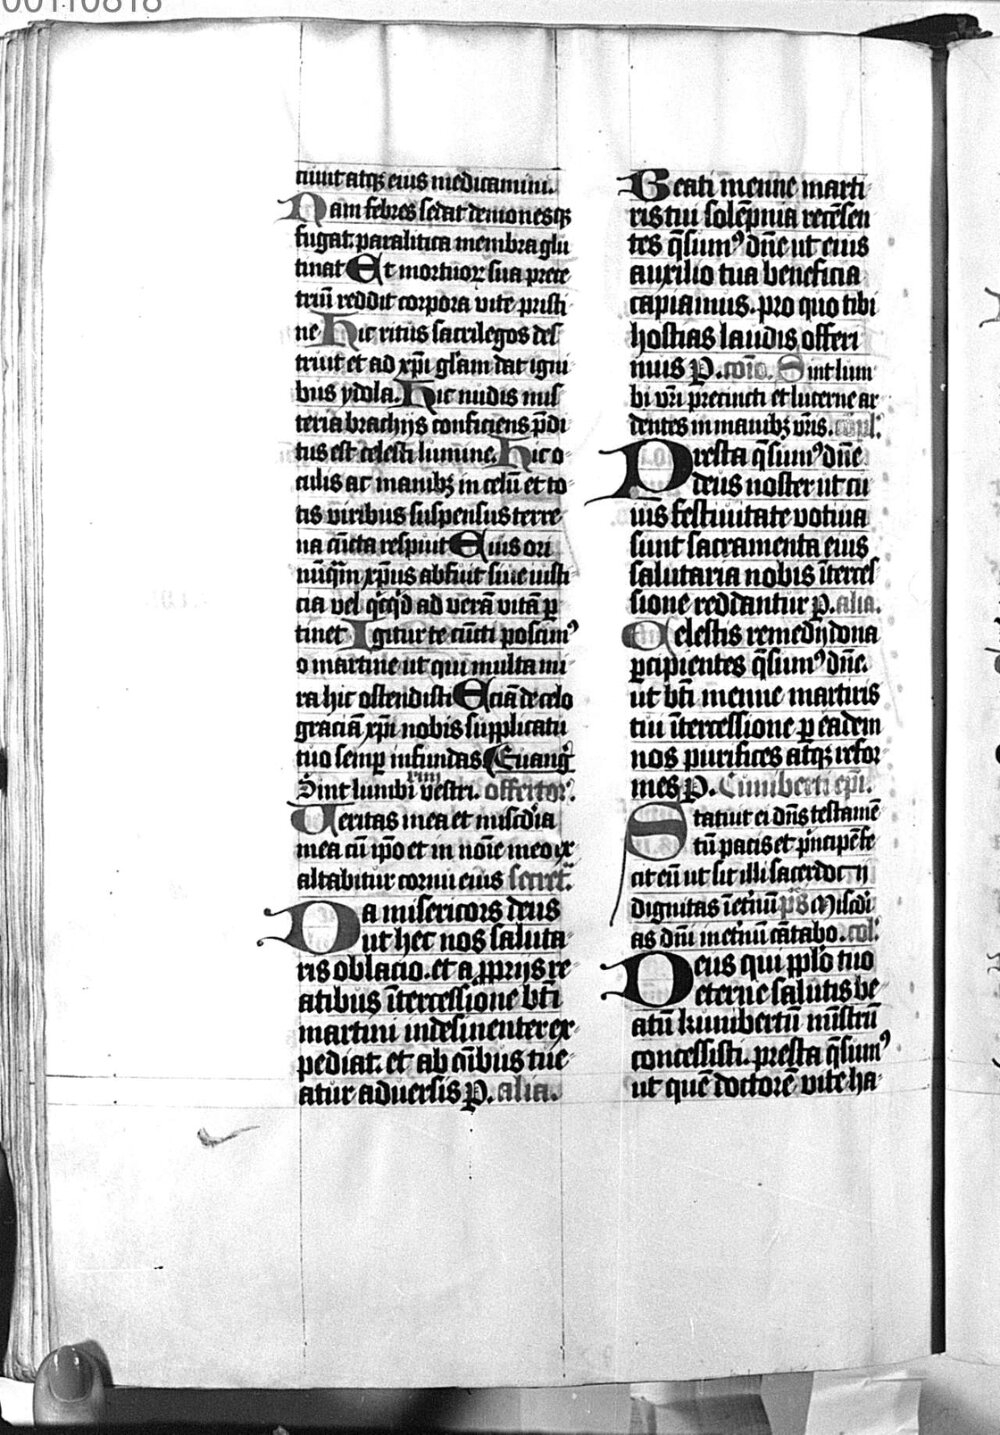 00110818
ciunt atqꝫ eius medicamini.
Nam febres sedat demonesqꝫ
fugat. paralitica membra glu
tinat Et mortuoꝝ sua prece
triū reddit corpora vite pristi
ne Hic ritus sacrilegos des
truit et ad xp̄i gl̄am dat igni
bus ydola. Hic nudis mis
teria brachijs conficiens p̄di
tus est celesti lumine. Hic o
culis ac manibꝫ in celū et to
tis viribus suspensus terre
na cūcta respuit Eius ori
nūq̄m xp̄us abfuit siue iusti
cia vel q̄cq̇d ad verā vitā ꝑ
tinet Igitur te cūcti poscimꝰ
o martine ut qui multa mi
ra hic ostendisti Eciā de celo
graciā xp̄i nobis supplicatu
tuo semꝑ infundas Euang̃
Sint lumbi vestri. offertor̃.
Veritas mea et misc̄dia
mea cū ip̄o et in noīe meo ex
altabitur cornu eius secret̃.
Da misericors deus
ut hec nos saluta
ris oblacio. et a ꝓprijs re
atibus ītercessione bt̄i
martini indesinenter ex
pediat. et ab oībus tue
atur aduersis P. alia.
Beati menne marti
ris tui solēpnia recēsen
tes q̄sumꝰ dn̄e ut eius
auxilio tua beneficia
capiamus. pro quo tibi
hostias laudis offeri
mus P. 9īo. Sint lum
bi vr̄i precincti et lucerne ar
dentes in manibꝫ vr̄is. 9pl̃.
Presta q̄sumꝰ dn̄e
deus noster ut cu
ius festiuitate votiua
sunt sacramenta eius
salutaria nobis īterces
sione reddantur P. alia.
Celestis remedij dona
ꝑcipientes q̄sumꝰ dn̄e.
ut bt̄i menne martiris
tui ītercessione ꝑ eadem
nos purifices atqꝫ refor
mes P. Cuniberti ep̄i.
Statuit ei dn̄s testamē
tū pacis et p̄ncipē fe
cit eū ut sit illi sacerdocij
dignitas īet̄nū p̄s Misc̄di
as dn̄i in et̄nū cātabo. col̃.
Deus qui pp̄lo tuo
eterne salutis be
atū kunibertū mīstrū
concessisti. presta q̄sumꝰ
ut quē doctorē vite ha